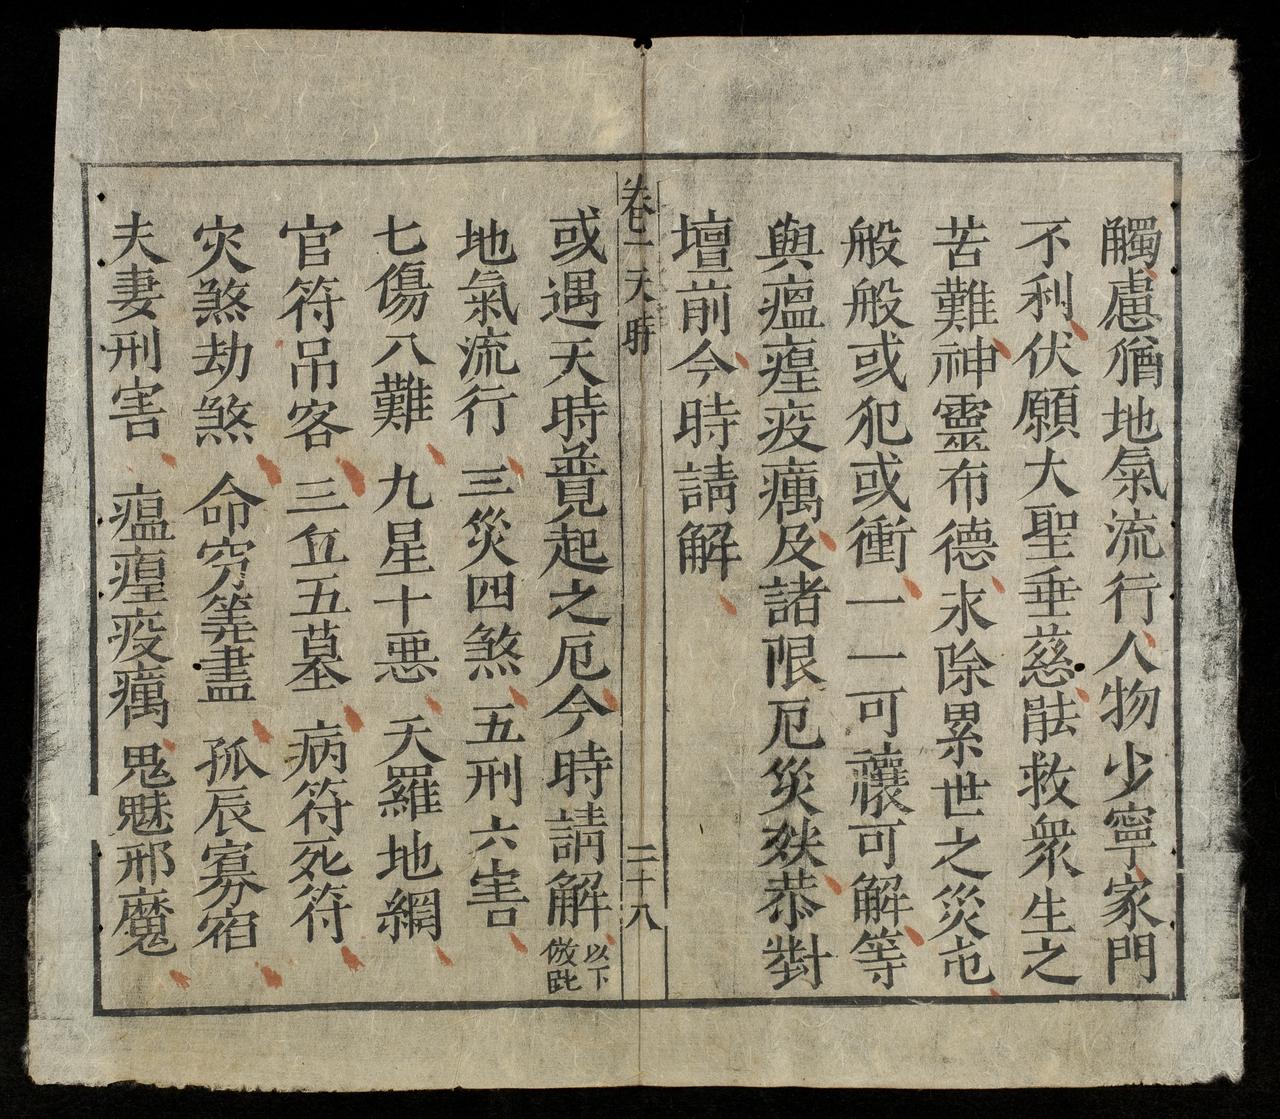 觸慮猶地氣流行人物少寧家門
不利伏願大聖垂慈䏻救衆生之
苦難神靈布德永除累世之災屯
般般或犯或衝一一可禳可解等
與瘟㾮疫癘及諸限厄災殃恭對
壇前今時請解
卷七 天時 二十八
或遇天時競起之厄今時請解以下倣此
地氣流行 三災四煞 五刑六害
七傷八難 九星十惡 天羅地網
官符吊客 三丘五墓 病符死符
灾煞劫煞 命穷筭盡 孤辰寡宿
夫妻刑害 瘟㾮疫癘 鬼魅邪魔